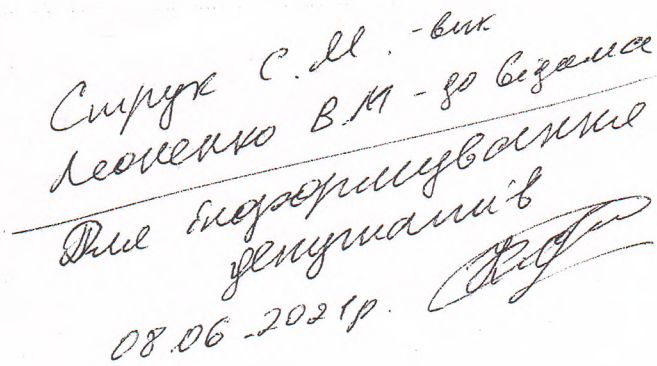 Струк С.М. - вик
Леоненко В.М - до відома
Для інформування
депутатів
08.06.2021р.